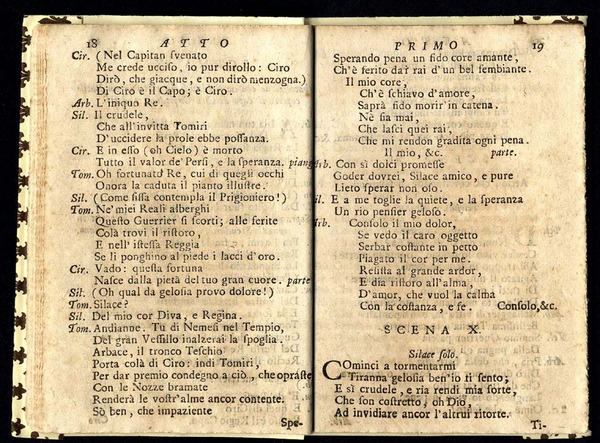 18 ATTO
Cir. (Nel Capitan svenato
Me crede ucciso, io pur dirollo: Ciro
Dirò, che giacque, e non dirò menzogna.)
Di Ciro è il Capo; è Ciro.
Arb. L'iniquo Re.
Sil. Il crudele,
Che all'invitta Tomiri
D'uccidere la prole ebbe possanza.
Cir. E in esso (oh Cielo) è morto
Tutto il valor de' Persi, e la speranza. piang
Tom. Oh fortunato Re, cui di quegli occhi
Onora la caduta il pianto illustre.
Sil. (Come fissa contempla il Prigioniero!)
Tom. Ne' miei Reali alberghi
Questo Guerrier si scorti; alle ferite
Colà trovi il ristoro,
E nell' istessa Reggia
Se li ponghino al piede i lacci d'oro.
Cir. Vado: questa fortuna
Nasce dalla pietà del tuo gran cuore. parte
Sil. (Oh qual da gelosia provo dolore!)
Tom. Silace?
Sil. Del mio cor Diva, e Regina.
Tom. Andianne. Tu di Nemesi nel Tempio,
Del gran Vessillo inalzerai la spoglia.
Arbace, il tronco Teschio
Porta colà di Ciro: indi Tomiri,
Per dar premio condegno a ciò, che opraste
Con le Nozze bramate
Renderà le vostr'alme ancor contente.
Sò ben, che impaziente
Spe-
PRIMO 19
Sperando pena un fido core amante,
Ch'è ferito dai rai d'un bel sembiante.
Il mio core,
Ch'è schiavo d'amore,
Saprà fido morir' in catena.
Nè sia mai,
Che lasci quei rai,
Che mi rendon gradita ogni pena.
Il mio, &c. parte.
Arb. Con sì dolci promesse
Goder dovrei, Silace amico, e pure
Lieto sperar non oso.
Sil. E a me toglie la quiete, e la speranza
Un rio pensier geloso.
Arb. Consolo il mio dolor,
Se vedo il caro oggetto
Serbar costante in petto
Piagato il cor per me.
Resista al grande ardor,
E dia ristoro all'alma,
D'amor, che vuol la calma
Con la costanza, e fe. Consolo, &c.
SCENA X.
Silace solo.
Cominci a tormentarmi
Tiranna gelosia ben'io ti sento;
E sì crudele, e ria rendi mia sorte,
Che son costretto, oh Dio,
Ad invidiare ancor l'altrui ritorte.
Ti-